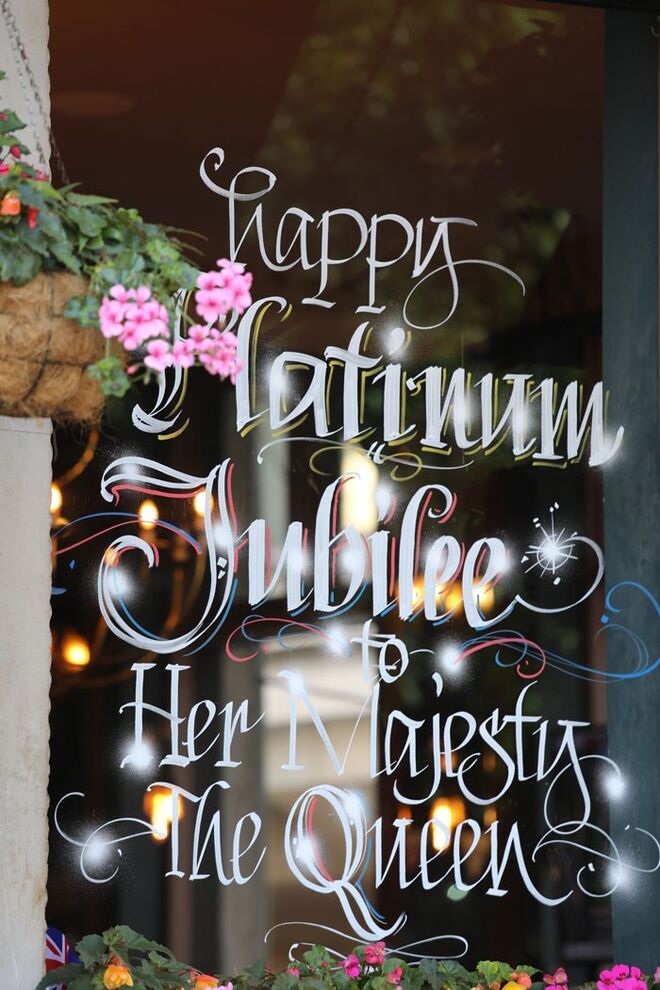 happy
Platinum
Jubilee
to
Her Majesty
The Queen